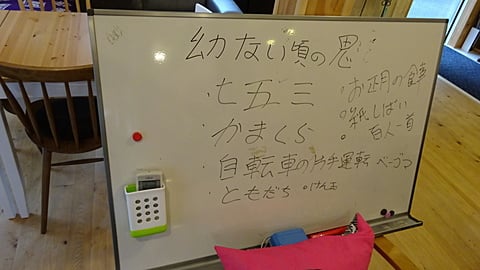 幼ない頃の思
・七五三
・お正月の食事
・紙しばい
・かまくら
・百人一首
・自転車の片手運転
ベーゴマ
・ともだち
・けん玉